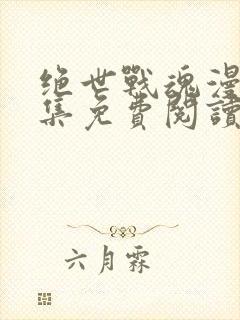 绝世戰魂漫
集免費閱讀
六月霖